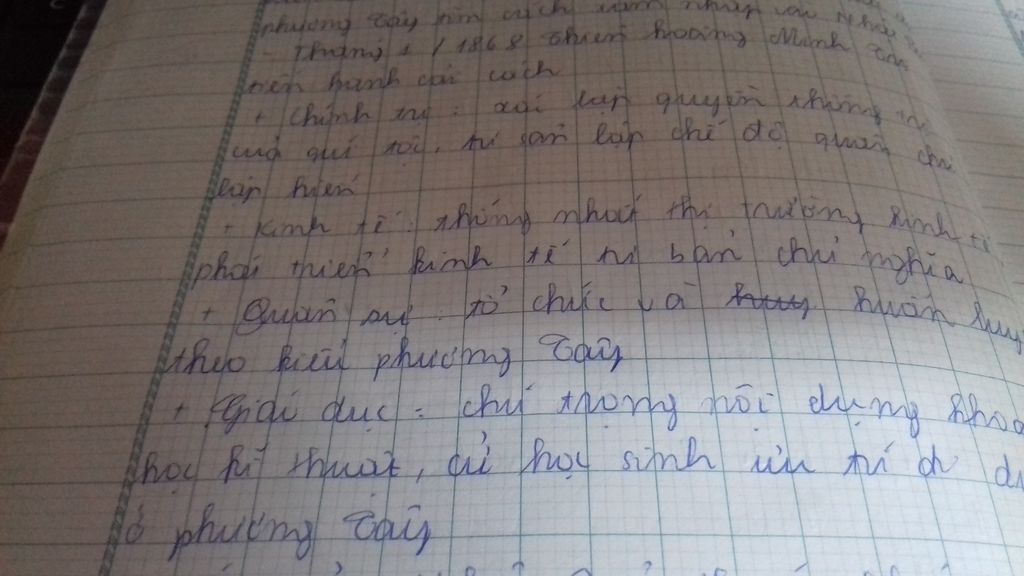 phương Tây tìm cách xâm nhập vào Nhật
- Tháng 1 / 1868 Thiên hoàng Minh Trị
tiến hành cải cách
+ Chính trị : xoá lập quyền thống trị
của quí tộc, tư sản lập chế độ quân chủ
lập hiến
+ Kinh tế : thống nhất thị trường kinh tế
phát triển kinh tế tư bản chủ nghĩa
+ Quân sự : tổ chức và huấn luy
theo kiểu phương Tây
+ Giái dục : chú trọng nôi dụng khoa
học kĩ thuật, cử học sinh ưu tú đi du
ở phương Tây